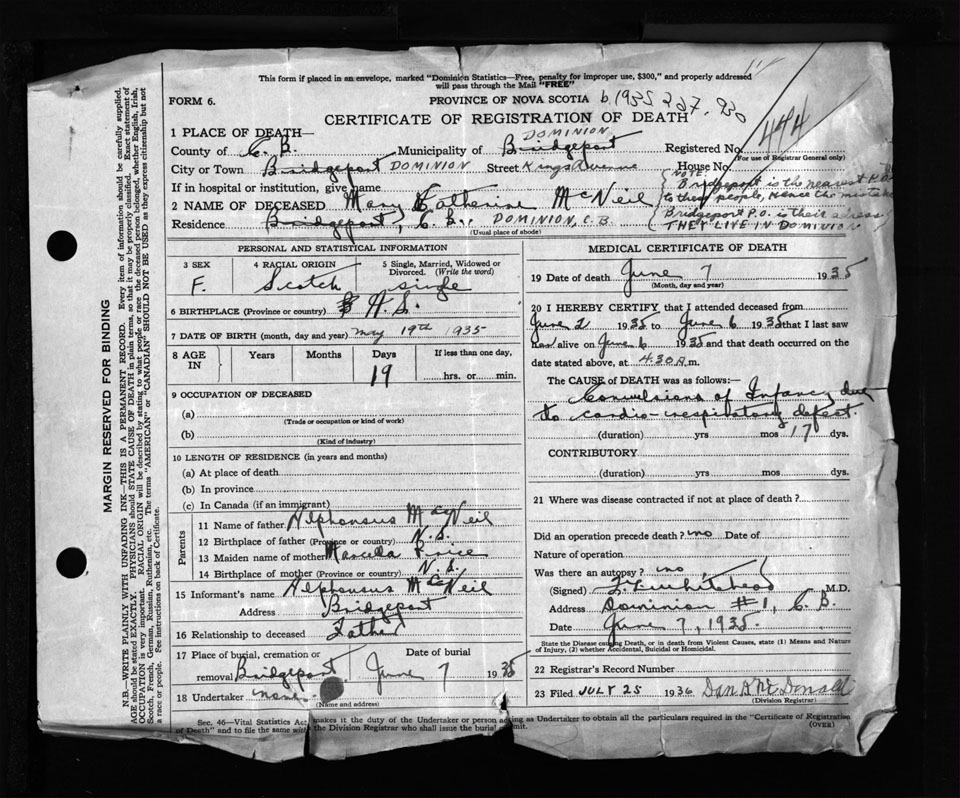 This form if placed in an envelope, marked "Dominion Statistics—Free, penalty for improper use, $300," and properly addressed
will pass through the Mail "FREE"
FORM 6.
PROVINCE OF NOVA SCOTIA
b. 1935 227. 930
444
CERTIFICATE OF REGISTRATION OF DEATH
1 PLACE OF DEATH—
DOMINION
County of C. B. Municipality of Bridgeport Registered No.
(For use of Registrar General only)
City or Town Bridgeport DOMINION Street Kings Avenue House No.
If in hospital or institution, give name
NOTE:
Bridgeport is the nearest P.O.
to these people, Hence the mistake
Bridgeport P.O. is their adress
THEY LIVE IN DOMINION
2 NAME OF DECEASED Mary Catherine McNeil
Residence Bridgeport, C. B., DOMINION, C.B.
(Usual place of abode)
MARGIN RESERVED FOR BINDING
N.B.—WRITE PLAINLY WITH UNFADING INK—THIS IS A PERMANENT RECORD. Every item of information should be carefully supplied.
AGE should be stated EXACTLY. PHYSICIANS should STATE CAUSE OF DEATH in plain terms, so that it may be properly classified. Exact statement of
OCCUPATION is very important. RACIAL ORIGIN will be described by stating to what people or race the deceased person belonged, whether English, Irish,
Scotch, French, German, Russian, Ruthenian, etc. The terms "AMERICAN" or "CANADIAN" SHOULD NOT BE USED as they express citizenship but not
a race or people. See instructions on back of Certificate.
PERSONAL AND STATISTICAL INFORMATION
3 SEX 4 RACIAL ORIGIN 5 Single, Married, Widowed or
Divorced. (Write the word)
F. Scotch single
6 BIRTHPLACE (Province or country) N.S.
7 DATE OF BIRTH (month, day and year) May 19th 1935
8 AGE IN Years Months Days If less than one day,
19 hrs. or min.
9 OCCUPATION OF DECEASED
(a)
(Trade or occupation or kind of work)
(b)
(Kind of industry)
10 LENGTH OF RESIDENCE (in years and months)
(a) At place of death
(b) In province
(c) In Canada (if an immigrant)
Parents
11 Name of father Alphonsus MacNeil
12 Birthplace of father (Province or country) N.S.
13 Maiden name of mother
14 Birthplace of mother (Province or country) N.S.
15 Informant's name Alphonsus MacNeil
Address Bridgeport
16 Relationship to deceased Father
17 Place of burial, cremation or Date of burial
removal Bridgeport June 7 1935
18 Undertaker none
(Name and address)
MEDICAL CERTIFICATE OF DEATH
19 Date of death June 7 1935
(Month, day and year)
20 I HEREBY CERTIFY, that I attended deceased from
June 2 1935 to June 6 1935 that I last saw
her alive on June 6 1935 and that death occurred on the
date stated above, at 4.30 A.m.
The CAUSE of DEATH was as follows:—
Convulsions of Infancy due
to cardio-respiratory defect.
(duration) yrs mos 17 dys.
CONTRIBUTORY
(duration) yrs. mos. dys.
21 Where was disease contracted if not at place of death?
Did an operation precede death? no Date of
Nature of operation
Was there an autopsy? no
(Signed) Whitehead M.D.
Address Dominion #1, C. B.
Date June 7, 1935.
State the Disease causing Death, or in death from Violent Causes, state (1) Means and Nature
of Injury, (2) whether Accidental, Suicidal or Homicidal.
22 Registrar's Record Number
23 Filed JULY 25 1936 Dan R McDonald
(Division Registrar)
Sec. 46—Vital Statistics Act makes it the duty of the Undertaker or person acting as Undertaker to obtain all the particulars required in the "Certificate of Registration
of Death" and to file the same with the Division Registrar who shall issue the burial permit.
(OVER)